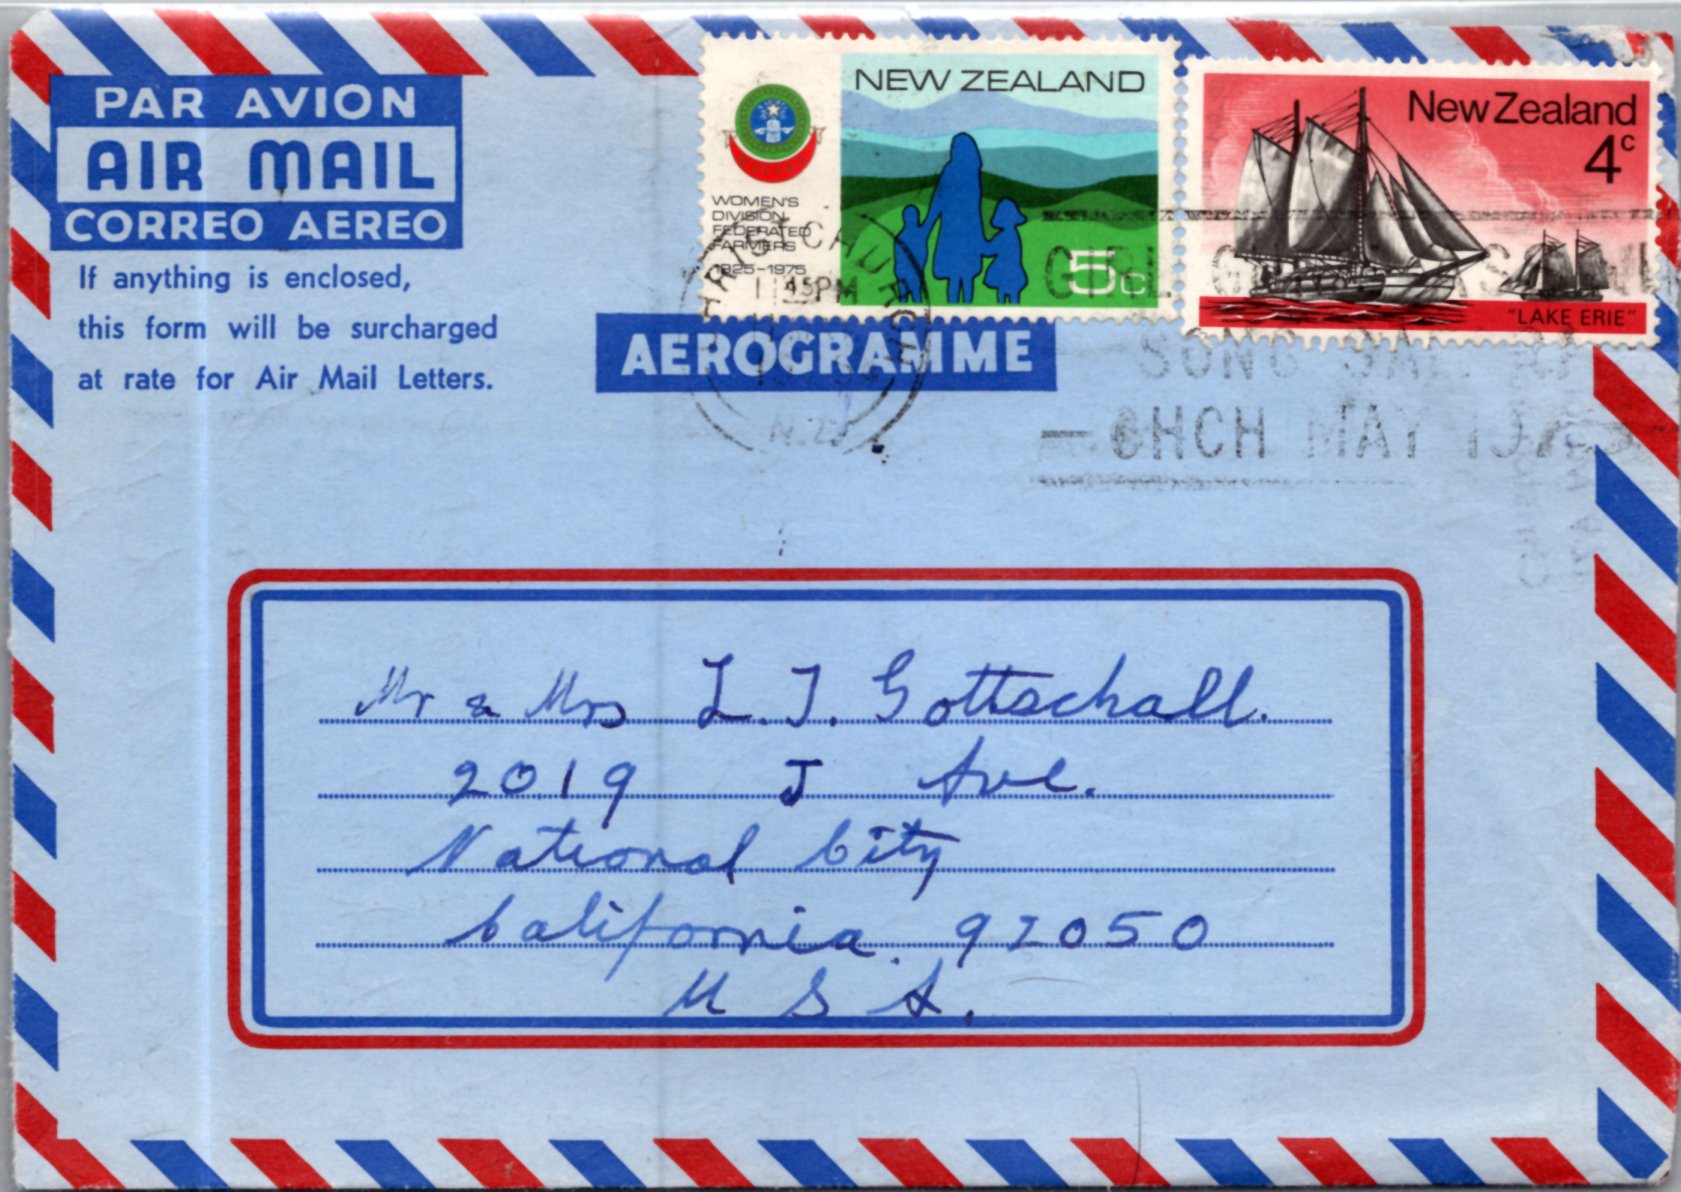 PAR AVION
AIR MAIL
CORREO AEREO
If anything is enclosed,
this form will be surcharged
at rate for Air Mail Letters.
NEW ZEALAND
WOMEN'S
DIVISION
FEDERATED
FARMERS
1925-1975
5c
New Zealand
4c
"LAKE ERIE"
AEROGRAMME
45PM
N.Z.
CHCH MAY
Mr & Mrs L. J. Gottschall.
2019 J Ave.
National City
California. 92050
U S A.